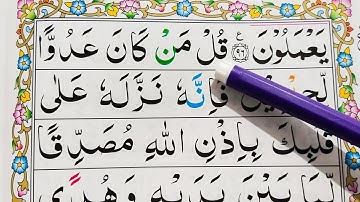 يَعْمَلُوْنَ ﴿٩٦﴾ ع قُلْ مَنْ كَانَ عَدُوًّا
لِّجِبْرِيْلَ فَاِنَّهٗ نَزَّلَهٗ عَلٰى
قَلْبِكَ بِاِذْنِ اللّٰهِ مُصَدِّقًا
لِّمَا بَيْنَ يَدَيْهِ وَهُدًى